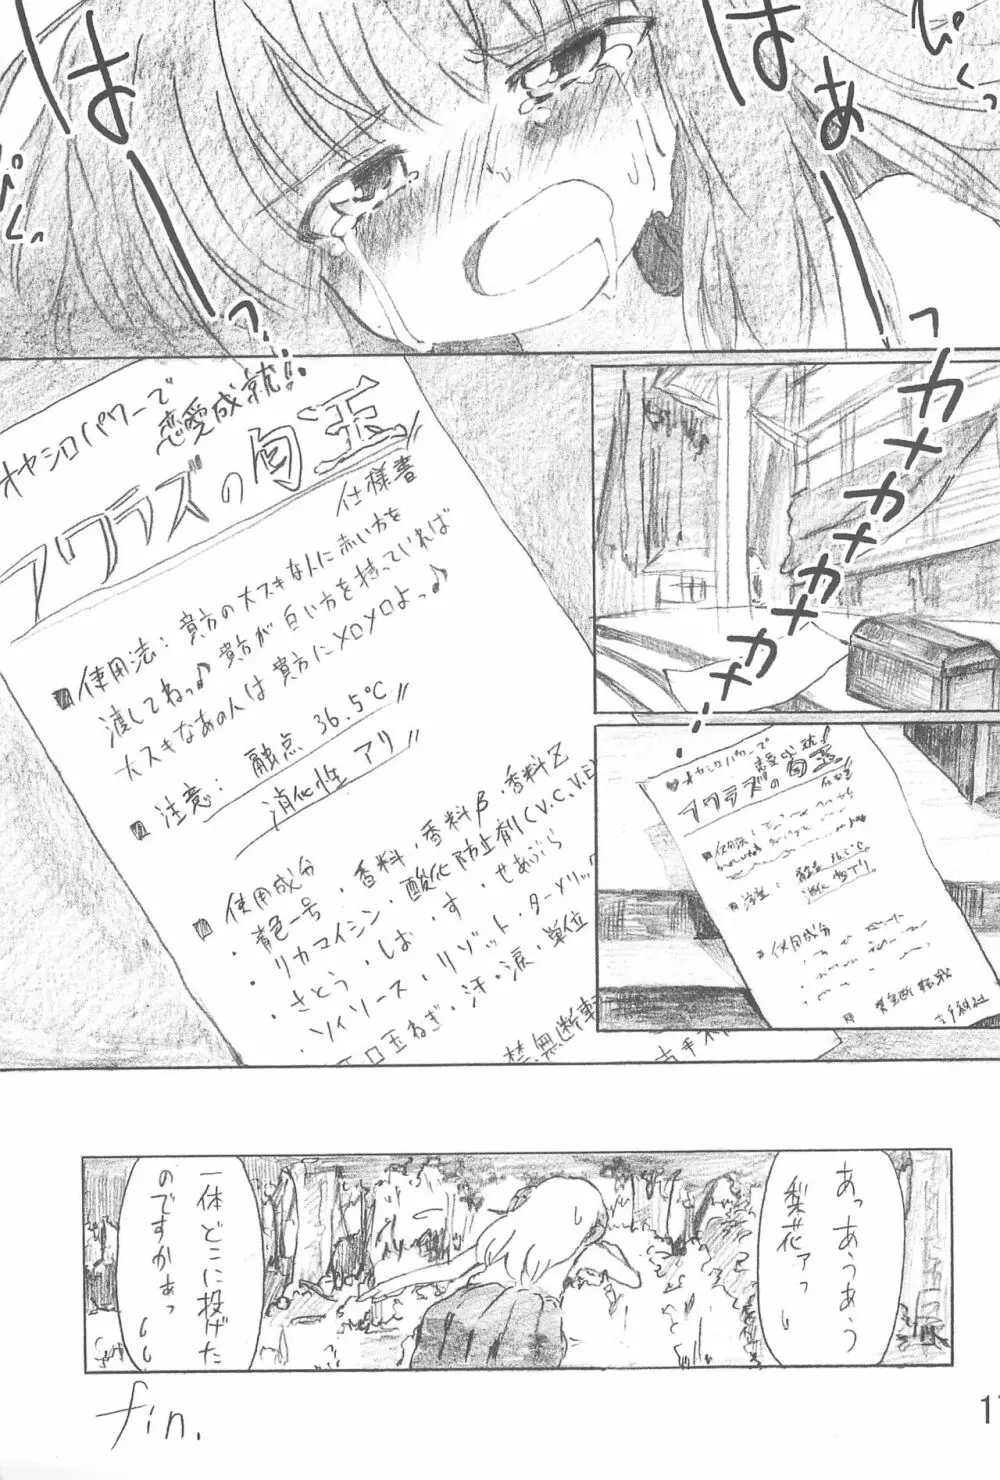 はぁーっ
はーっ
びくっ
びくっ
カメカメカメ…
オヤシロパワーで
恋愛成就!!
フワラズの勾玉
仕様書
■使用法：貴方の大スキな人に赤い方を
渡してねっ♪貴方が白い方を持っていれば
大スキなあの人は貴方にメロメロよっ♪
■注意：融点 36.5℃
消化性 アリ
■使用成分
・青色一号、香料、香料β・香料Z
リカマイシン・酸化防止剤(V.C、V.E)
・さとう・しお・す・せあぶら
・ソイソース・リゾット・ターメリッ
玉ねぎ・汗・涙・単位
禁無断転
古手
♥オヤシロパワーで
恋愛成就!
フワラズの勾玉
仕様書
■使用法：
■注意：融点 36.5℃
消化性アリ
■使用成分
禁無断転載
古手神社
あっあうあう
梨花ァっ
一体どこに投げた
のですかぁっ
fin.